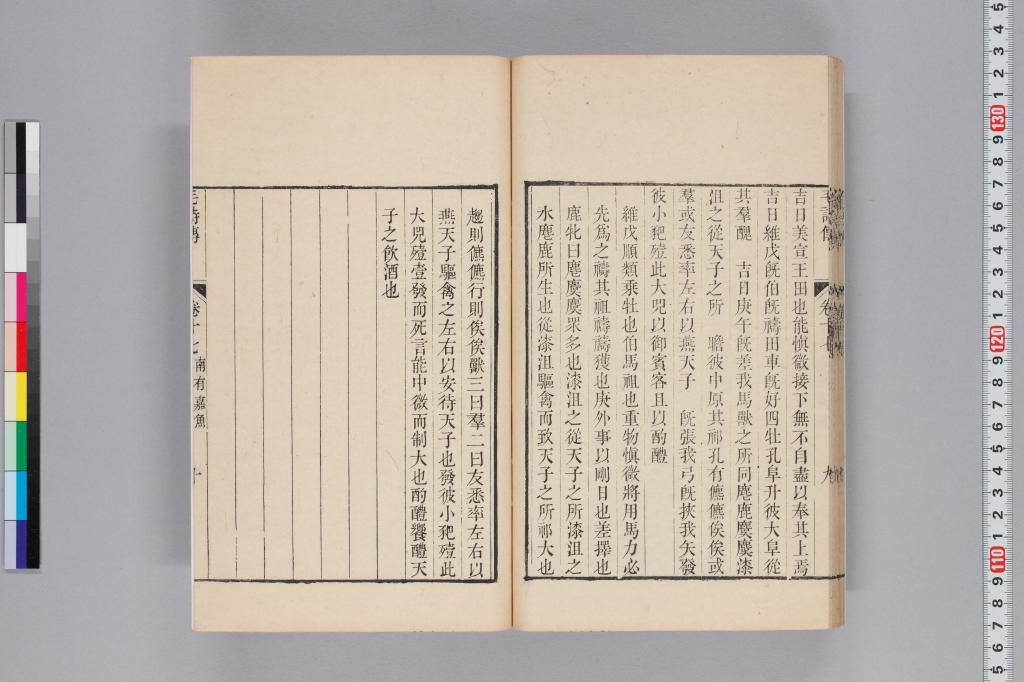 吉日美宣王田也能愼微接下無不自盡以奉其上焉
吉日維戊旣伯旣禱田車旣好四牡孔阜升彼大阜從
其羣醜　吉日庚午旣差我馬獸之所同麀鹿麌麌漆
沮之從天子之所　瞻彼中原其祁孔有儦儦俟俟或
羣或友悉率左右以燕天子　旣張我弓旣挾我矢發
彼小豝殪此大兕以御賓客且以酌醴
維戊順類乘牡也伯馬祖也重物愼微將用馬力必
先爲之禱其祖禱禱獲也庚外事以剛日也差擇也
鹿牝曰麀麌麌眾多也漆沮之從天子之所漆沮之
水麀鹿所生也從漆沮驅禽而致天子之所祁大也
趨則儦儦行則俟俟獸三曰羣二曰友悉率左右以
燕天子驅禽之左右以安待天子也發彼小豝殪此
大兕殪壹發而死言能中微而制大也酌醴饗醴天
子之飮酒也
毛詩傳
卷十七
南有嘉魚
十
九